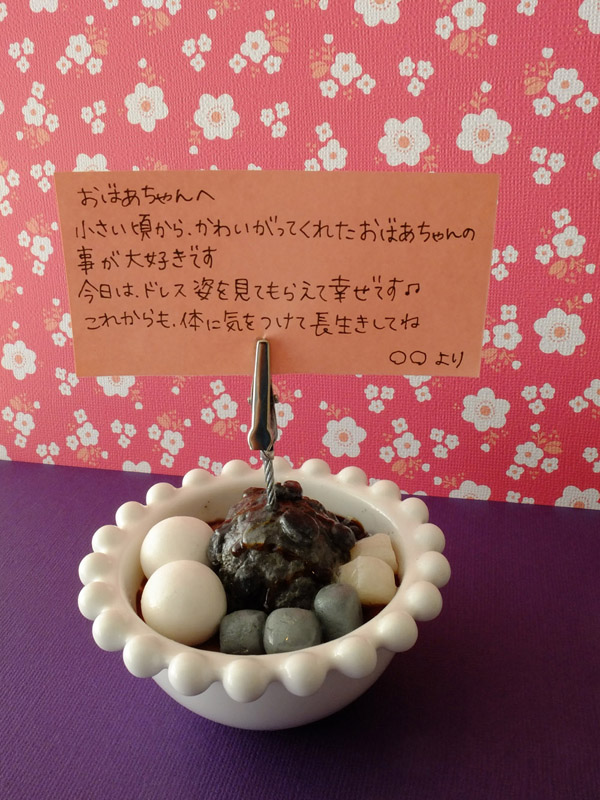 おばあちゃんへ
小さい頃から、かわいがってくれたおばあちゃんの
事が大好きです
今日は、ドレス姿を見てもらえて幸せです♫
これからも、体に気をつけて長生きしてね
○○より